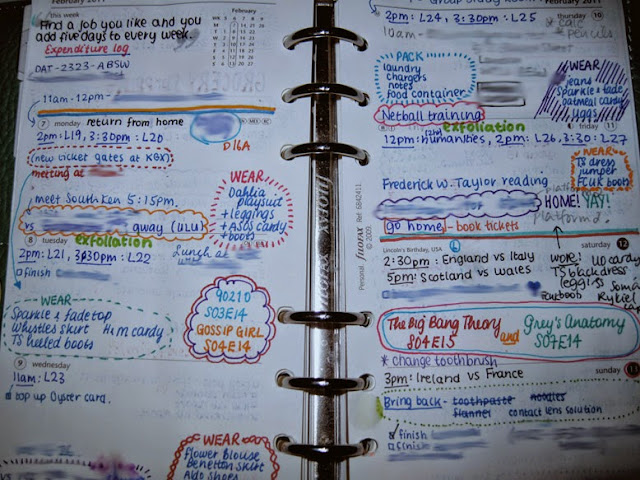 this week
Find a job you like and you
add five days to every week.
Expenditure log
DAT-2323-ABSW
11am-12pm-
February
7 monday return from home
2pm: L19, 3:30pm: L20
D16A
(new ticket gates at KGX)
meeting at
meet South Ken 5:15pm.
vs away (ULU)
WEAR
Dahlia
playsuit
+ leggings
+ ASOS cardy
+ boots
8 tuesday exfoliation
2pm: L21, 3:30pm: L22
Lunch at
finish
WEAR
Sparkle & fade top
Whistles skirt H&M cardy
TS heeled boots
90210
S03E14
GOSSIP GIRL
S04E14
9 wednesday
11am: L23
top up Oyster card.
WEAR
Flower Blouse
Benetton skirt
Aldo shoes
Personal filofax Ref. 6842411
© 2009
February 2011
Group study room
thursday 10
2pm: L24, 3:30pm: L25
10am-
PACK
laundry
chargers
notes
food container
WEAR
jeans
Sparkle & fade
oatmeal cardy
uggs
Netball training
exfoliation
friday 11
12pm: humanities, 2pm: L26, 3:30: L27
WEAR
TS dress
jumper
FCUK boots
Frederick W. Taylor reading
HOME! YAY!
platform?
go home - book tickets
Lincoln's Birthday, USA
saturday 12
2:30pm: England vs Italy
5pm: Scotland vs Wales
wore:
TS black dress
leggings
UO cardy
Sonia
Rykiel
The Big Bang Theory and Grey's Anatomy
S04E15 S07E14
* change toothbrush
sunday
3pm: Ireland vs France
Bring back - toothpaste noodles
flannel contact lens solution
finish
finish